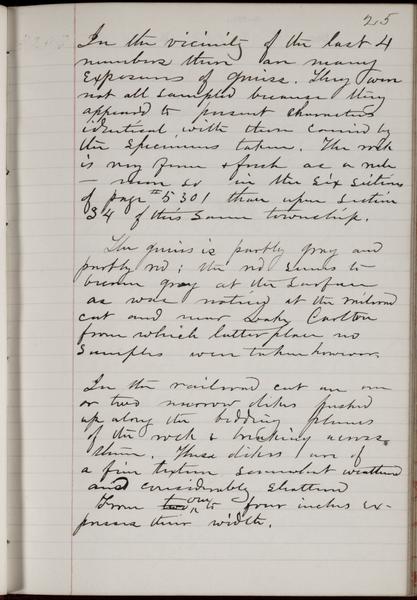 25
In the vicinity of the last 4
numbers there are many
exposures of gneiss. They were
not all sampled because they
appeared to present characters
identical with those covered by
the specimens taken. The rock
is very firm & fresh as a rule
— more so in the six sections
of page # 5301 than upon section
34 of this same township.
The gneiss is partly gray and
partly red; the red seems to
become gray at the surface
as was noticed at the railroad
cut and near Carlton
from which latter place no
samples were taken however.
In the railroad cut are one
or two narrow dikes pushed
up along the bedding planes
of the rock & breaking across
them. These dikes are of
a fine texture somewhat weathered
and considerably shattered
From one to four inches ex-
presses their width.